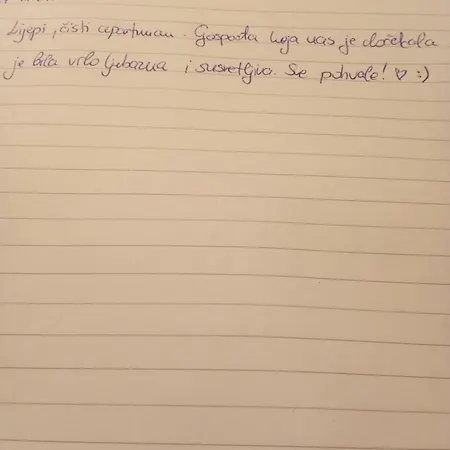 Lijepi, čisti apartman. Gospođa koja nas je dočekala
je bila vrlo ljubazna i susretljiva. Sve pohvale! ♡ :)